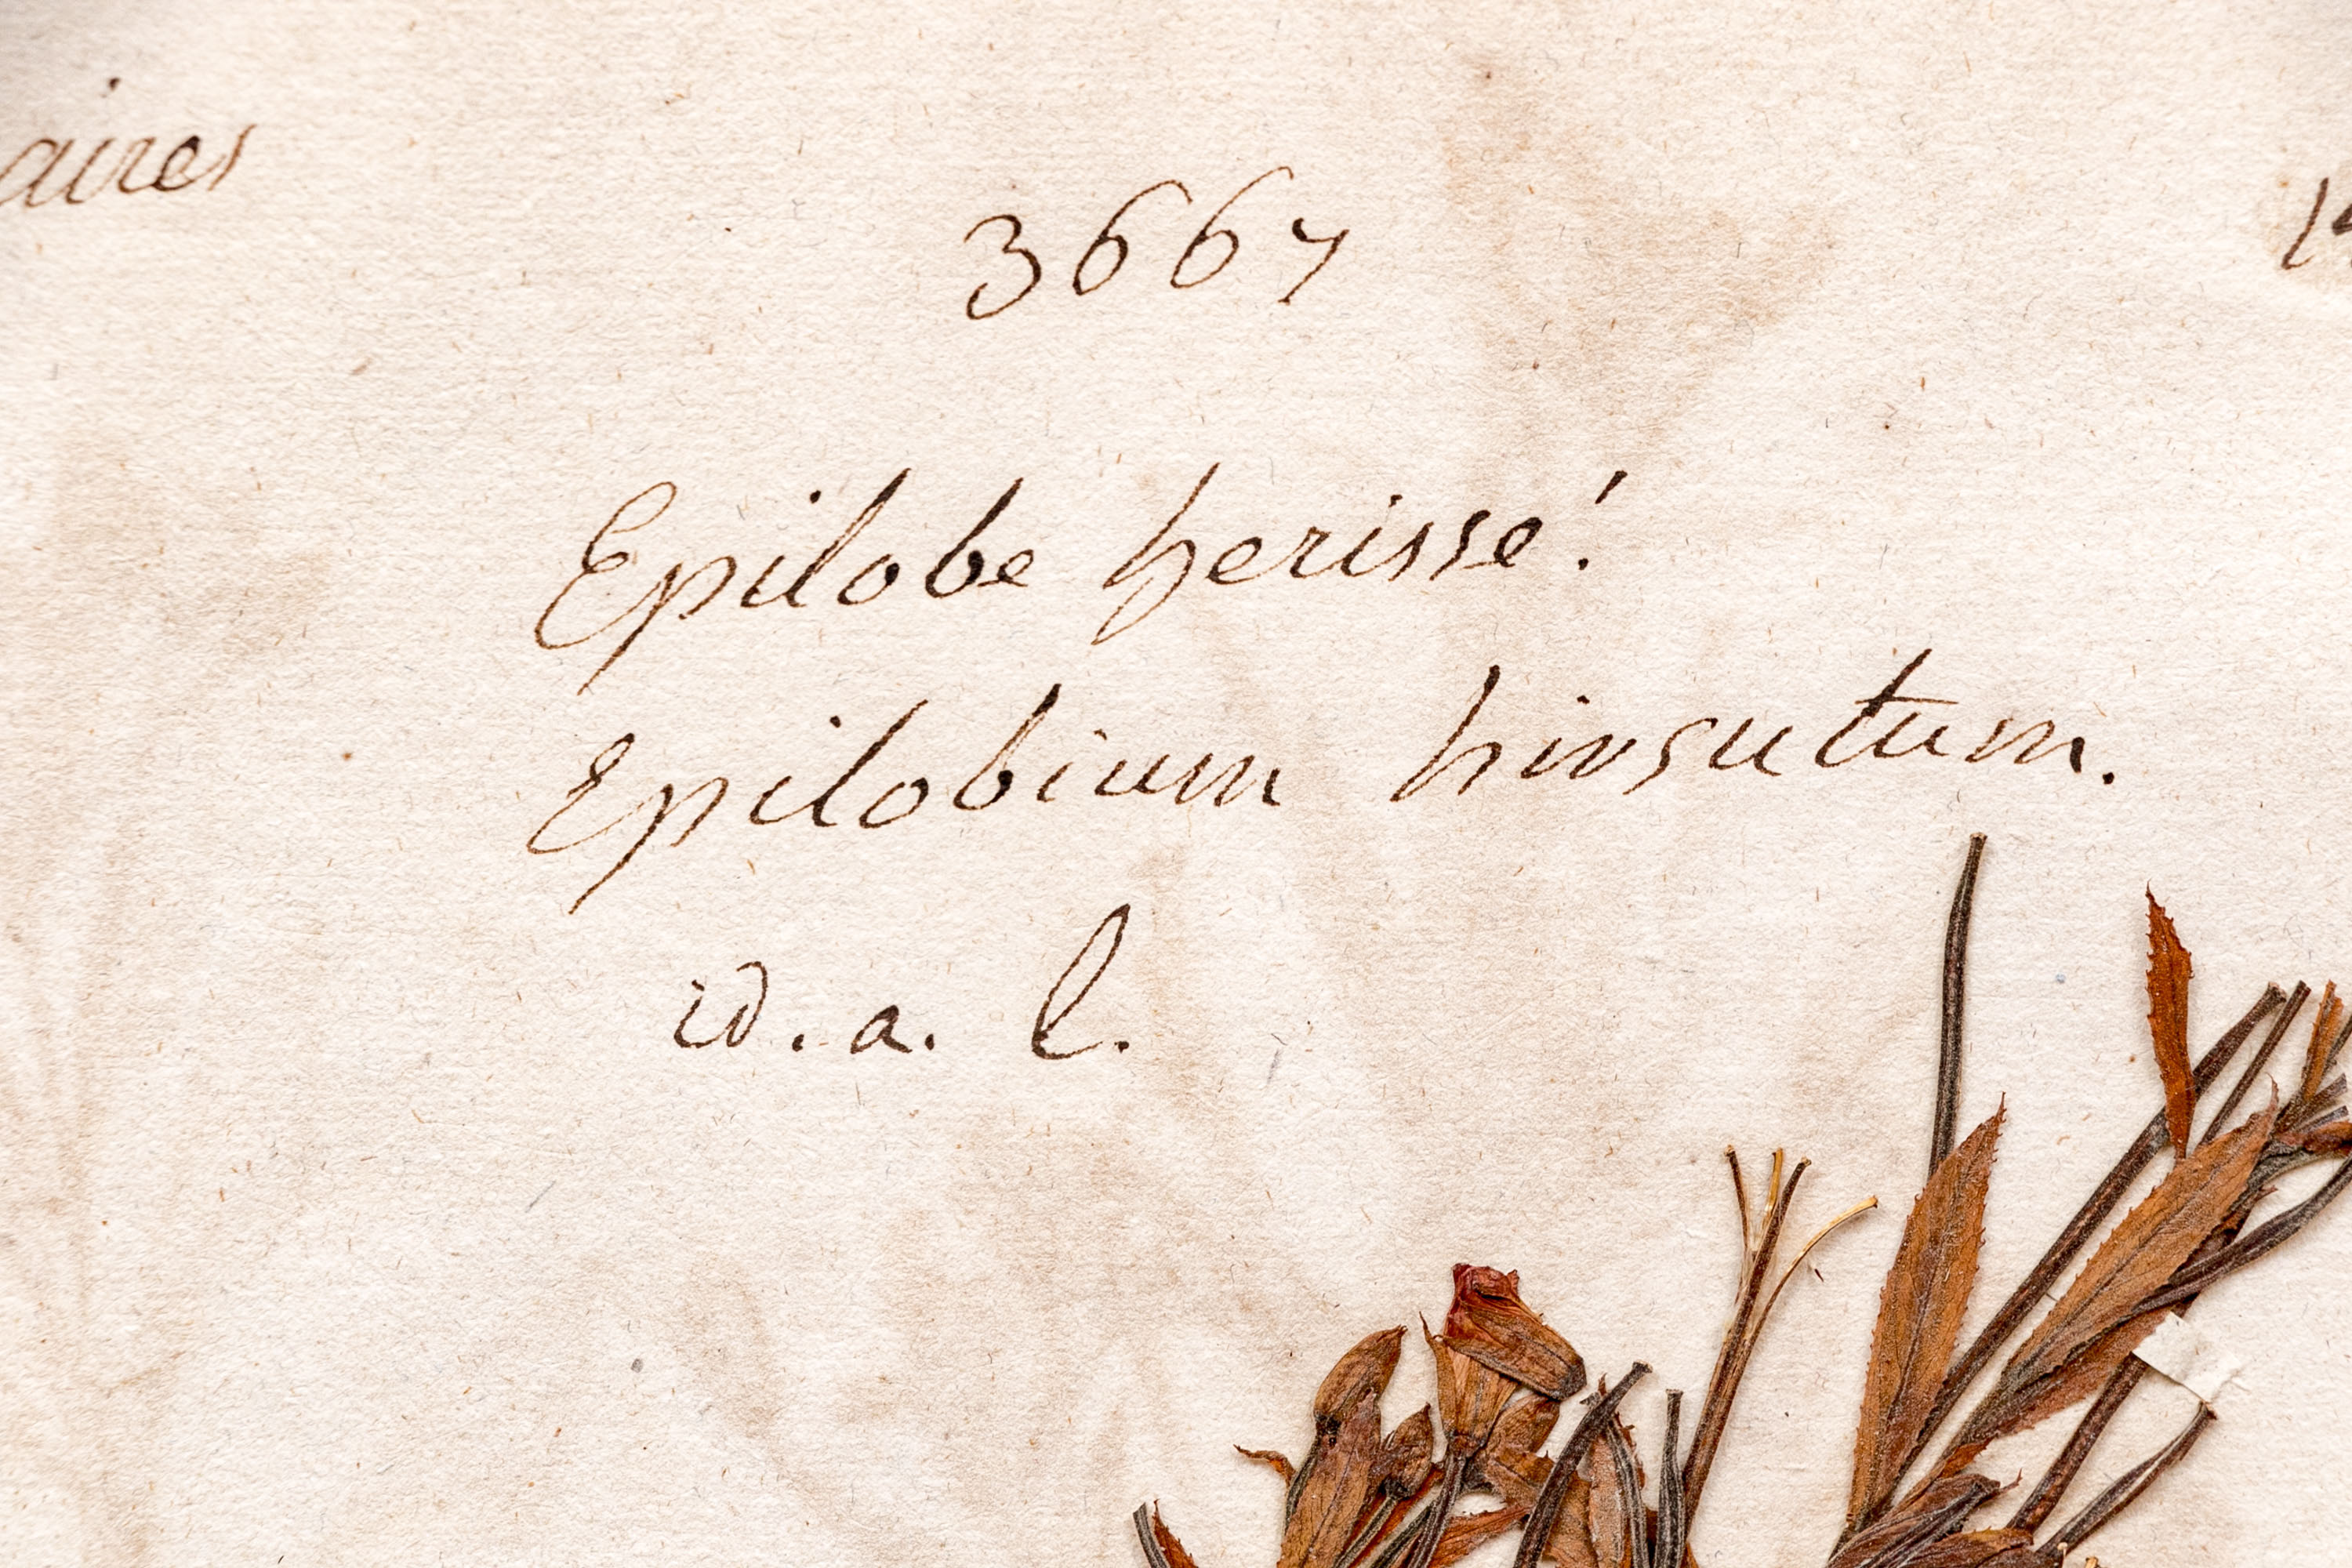 aires
3667
Epilobe herissé.
Epilobium hirsutum.
id. a. l.